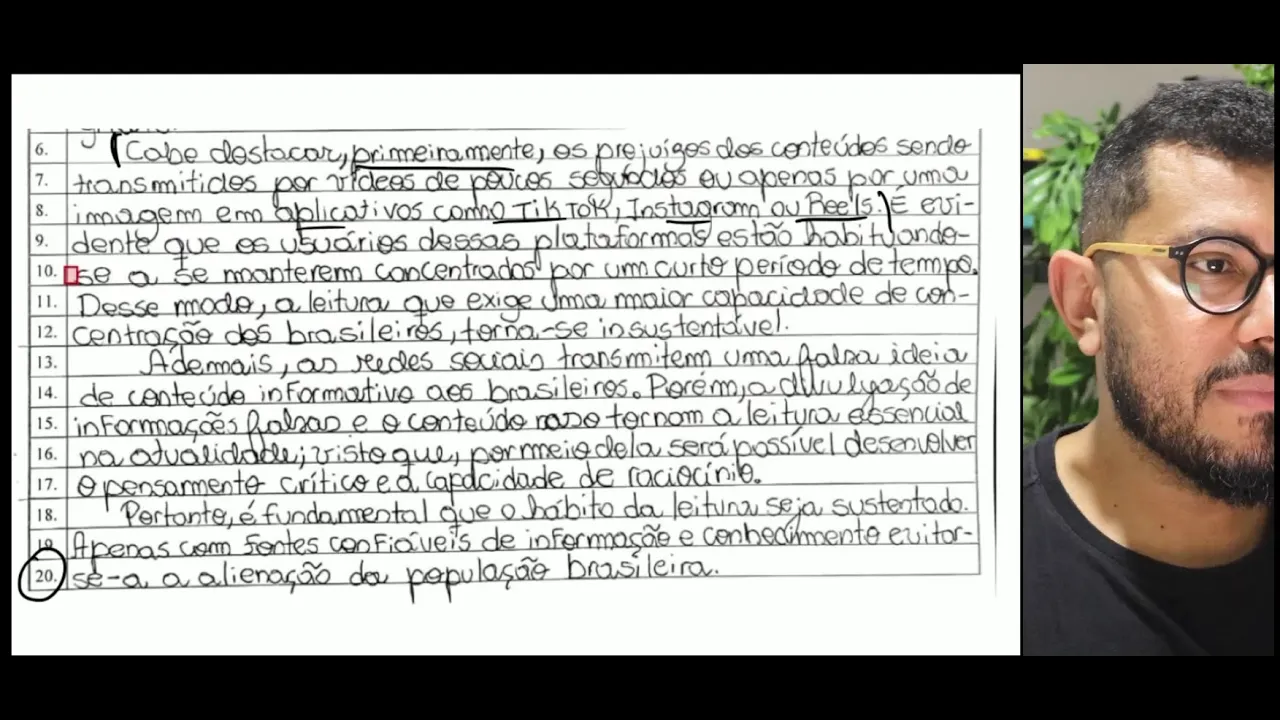 6. Cabe destacar, primeiramente, os prejuízos dos conteúdos sendo
7. transmitidos por vídeos de poucos segundos ou apenas por uma
8. imagem em aplicativos como TikTok, Instagram ou Reels. É evi-
9. dente que os usuários dessas plataformas estão habituando-
10. se a se manterem concentrados por um curto período de tempo.
11. Desse modo, a leitura que exige uma maior capacidade de con-
12. centração dos brasileiros, torna-se insustentável.
13. Ademais, as redes sociais transmitem uma falsa ideia
14. de conteúdo informativo aos brasileiros. Porém, a divulgação de
15. informações falsas e o conteúdo raso tornam a leitura essencial
16. na atualidade, visto que, por meio dela será possível desenvolver
17. o pensamento crítico e a capacidade de raciocínio.
18. Portanto, é fundamental que o hábito da leitura seja sustentado.
19. Apenas com fontes confiáveis de informação e conhecimento evitar-
20. se-a a alienação da população brasileira.